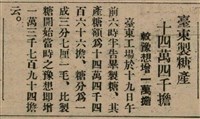 臺東製糖產
十四萬四千擔
較豫想增一萬擔
臺東工場於十九日午
前六時半告畢製糖、其
產糖額爲十四萬四千四
百六十六擔、糖分爲一
成三分七厘一毛、比製
糖開始當時之豫想即增
一萬三千七百九十四擔
云。